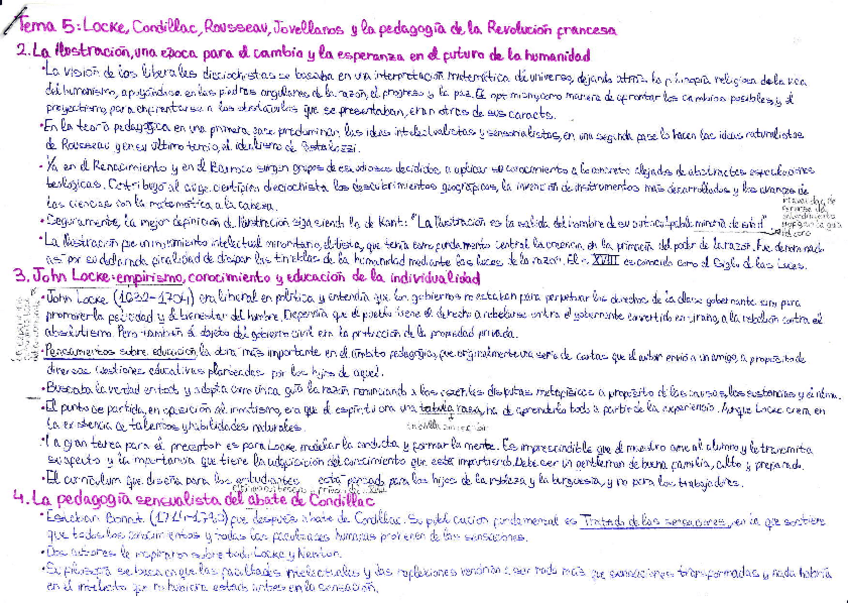 Tema 5: Locke, Condillac, Rousseau, Jovellanos y la pedagogía de la Revolución francesa
2. La Ilustración, una época para el cambio y la esperanza en el futuro de la humanidad
• La visión de los liberales dieciochistas se basaba en una interpretación matemática del universo, dejando atrás la filosofía religiosa de la vida
del humanismo, apoyándose en las piedras angulares de la razón, el progreso y la paz. El optimismo como manera de afrontar los cambios posibles y el
proyectismo, para enfrentarse a los obstáculos que se presentaban, eran otros de sus caracts.
• En la teoría pedagógica en una primera fase predominan las ideas intelectualistas y sensorialistas, en una segunda fase lo hacen las ideas naturalistas
de Rousseau y en su último tercio, el idealismo de Pestalozzi.
• Ya en el Renacimiento y en el Barroco surgen grupos de estudiosos decididos a aplicar su conocimiento a lo concreto alejados de abstractas especulaciones
teológicas. Contribuyó al auge científico dieciochista los descubrimientos geográficos, la invención de instrumentos más desarrollados y los avances de
las ciencias con la matemática a la cabeza.
• Seguramente, la mejor definición de Ilustración siga siendo la de Kant: "La Ilustración es la salida del hombre de su autoculpable minoría de edad"
• La Ilustración fue un movimiento intelectual minoritario, elitista, que tenía como fundamento central la creencia en la primacía del poder de la razón. Fue denominado
así por su declarada finalidad de disipar las tinieblas de la humanidad mediante las luces de la razón. El s. XVIII es conocido como el Siglo de las Luces.
3. John Locke: empirismo, conocimiento y educación de la individualidad
• John Locke (1632-1704) era liberal en política y entendía que los gobiernos no estaban para perpetuar los derechos de la clase gobernante sino para
promover la felicidad y el bienestar del hombre. Defendía que el pueblo tiene el derecho a rebelarse contra el gobernante convertido en tirano, a la rebelión contra el
absolutismo. Pero también el objeto del gobierno civil era la protección de la propiedad privada.
• Pensamientos sobre educación, la obra más importante en el ámbito pedagógico, fue originalmente una serie de cartas que el autor envió a un amigo, a propósito de
diversas cuestiones educativas planteadas por los hijos de aquel.
• Buscaba la verdad en todo y adopta como única guía la razón renunciando a las disputas metafísicas a propósito de las causas, las sustancias y el alma.
• El punto de partida, en oposición al innatismo, era que el espíritu era una tabula rasa, ha de aprenderlo todo a partir de la experiencia. Aunque Locke creía en
la existencia de talentos y habilidades naturales.
• La gran tarea para el preceptor es para Locke modelar la conducta y formar la mente. Es imprescindible que el maestro ame al alumno y le transmita
respecto y la importancia que tiene la adquisición del conocimiento que está impartiendo. Debe ser un gentleman de buena familia, culto y preparado.
• El currículum que diseña para los estudiantes está pensado para los hijos de la nobleza y la burguesía, y no para los trabajadores.
4. La pedagogía sensualista del abate de Condillac
• Esteban Bonnot (1714-1780) fue después abate de Condillac. Su publicación fundamental es Tratado de las sensaciones, en la que sostiene
que todos los conocimientos y todas las facultades humanas provienen de las sensaciones.
• Dos autores le inspiraron sobre todo: Locke y Newton.
• Su filosofía se basa en que las facultades intelectuales y las reflexiones vendrían a ser nada más que sensaciones transformadas y nada habría
en el intelecto que no hubiera estado antes en la sensación.